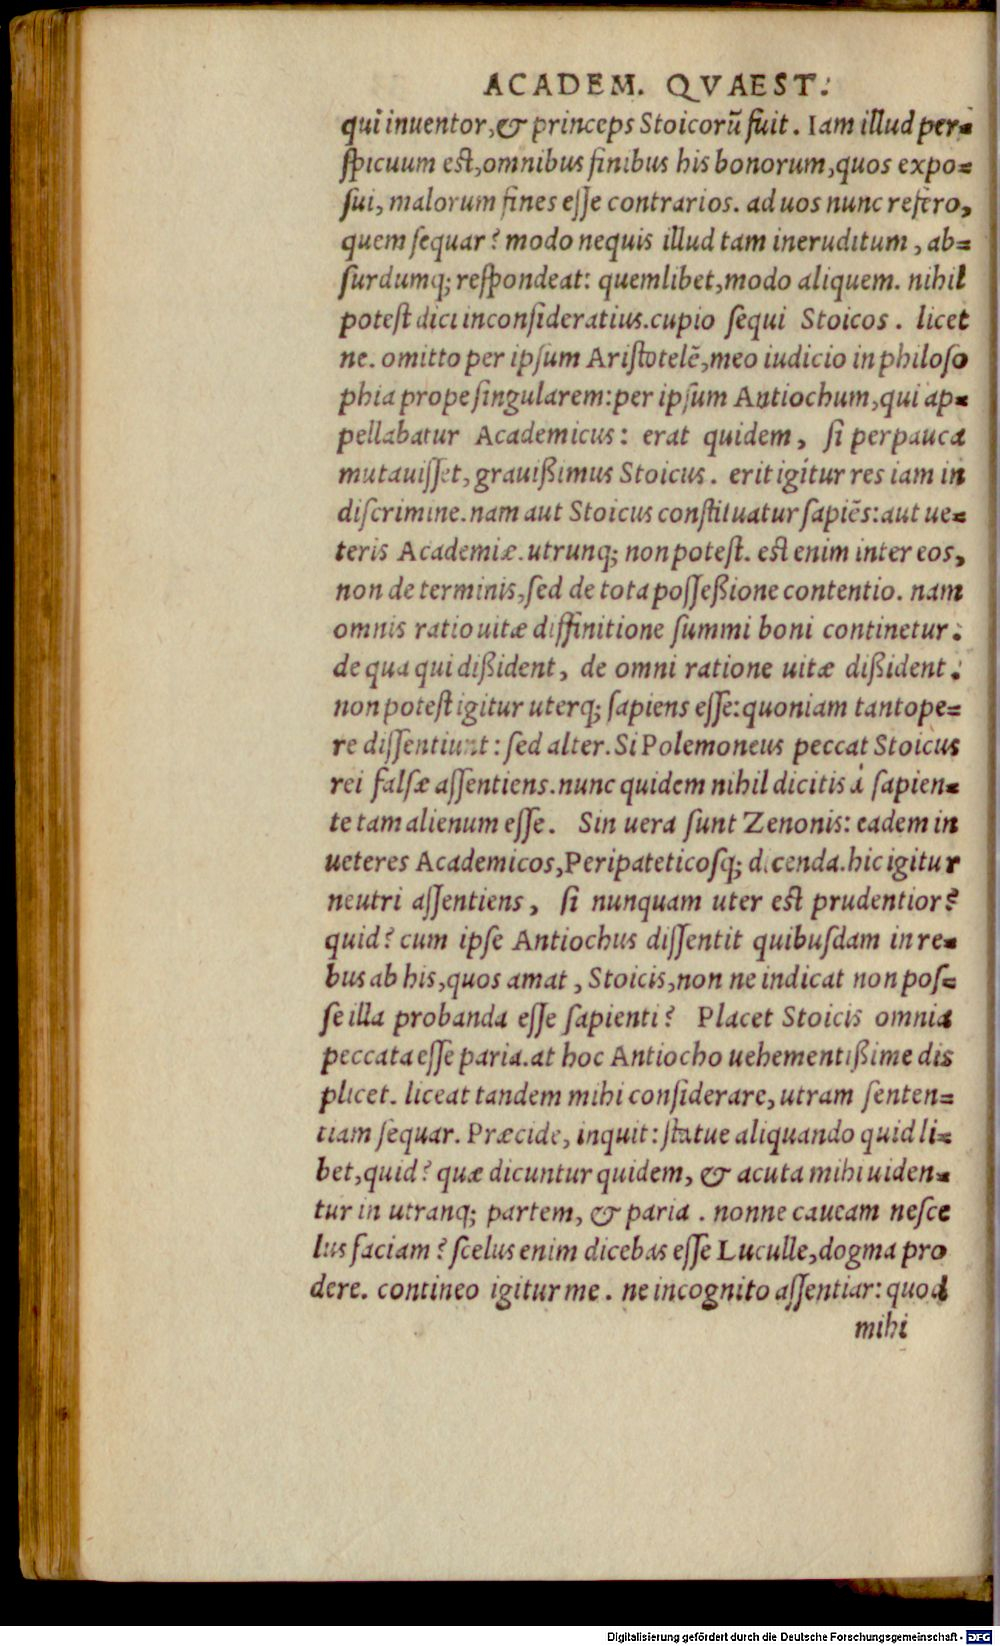 ACADEM. QVAEST.
qui inuentor,& princeps Stoicorũ fuit. Iam illud per-
ſpicuum eſt,omnibus finibus his bonorum,quos expo-
ſui, malorum fines eſſe contrarios. ad uos nunc refero,
quem ſequar? modo nequis illud tam ineruditum, ab-
ſurdumq; reſpondeat: quemlibet,modo aliquem. nihil
poteſt dici inconſideratius.cupio ſequi Stoicos. licet
ne. omitto per ipſum Ariſtotelẽ,meo iudicio in philoſo
phia prope ſingularem:per ipſum Antiochum,qui ap-
pellabatur Academicus: erat quidem, ſi perpauca
mutauiſſet, grauißimus Stoicus. erit igitur res iam in
diſcrimine.nam aut Stoicus conſtituatur ſapiẽs:aut ue-
teris Academiæ.utrunq; non poteſt. eſt enim inter eos,
non de terminis,ſed de tota poſſeßione contentio. nam
omnis ratio uitæ diffinitione ſummi boni continetur:
de qua qui dißident, de omni ratione uitæ dißident:
non poteſt igitur uterq; ſapiens eſſe:quoniam tantope-
re diſſentiunt: ſed alter. Si Polemoneus peccat Stoicus
rei falſæ aſſentiens.nunc quidem nihil dicitis á ſapien-
te tam alienum eſſe. Sin uera ſunt Zenonis: eadem in
ueteres Academicos,Peripateticoſq; dicenda.hic igitur
neutri aſſentiens, ſi nunquam uter eſt prudentior?
quid? cum ipſe Antiochus diſſentit quibuſdam in re-
bus ab his,quos amat, Stoicis,non ne indicat non poſ-
ſe illa probanda eſſe ſapienti? Placet Stoicis omnia
peccata eſſe paria.at hoc Antiocho uehementißime dis
plicet. liceat tandem mihi conſiderare, utram ſenten-
tiam ſequar. Præcide, inquit: ſtatue aliquando quid li-
bet,quid? quæ dicuntur quidem, & acuta mihi uiden-
tur in utranq; partem, & paria. nonne caueam neſce
lus faciam? ſcelus enim dicebas eſſe Luculle,dogma pro
dere. contineo igitur me. ne incognito aſſentiar: quod
mihi
Digitalisierung gefördert durch die Deutsche Forschungsgemeinschaft - DFG